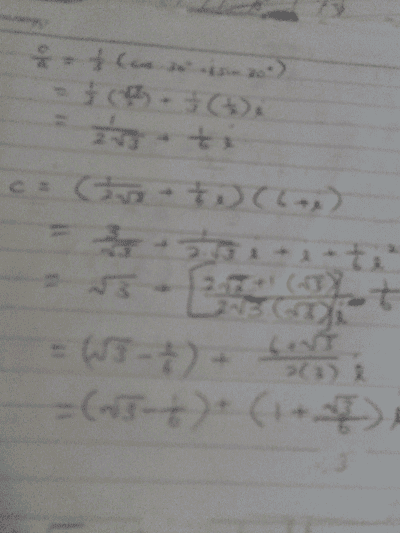 c/a = 1/3 (cos 30° + i sin 30°)
= 1/3 (√3/2) + 1/3 (1/2) i
= 1/2√3 + 1/6 i
c = (1/2√3 + 1/6 i)(6+i)
= 3/√3 + 1/2√3 i + i + 1/6 i²
= √3 + [2√3+1 (√3)/2√3 (√3)] i - 1/6
= (√3 - 1/6) + 6+√3/2(3) i
= (√3 - 1/6) + (1 + √3/6) i